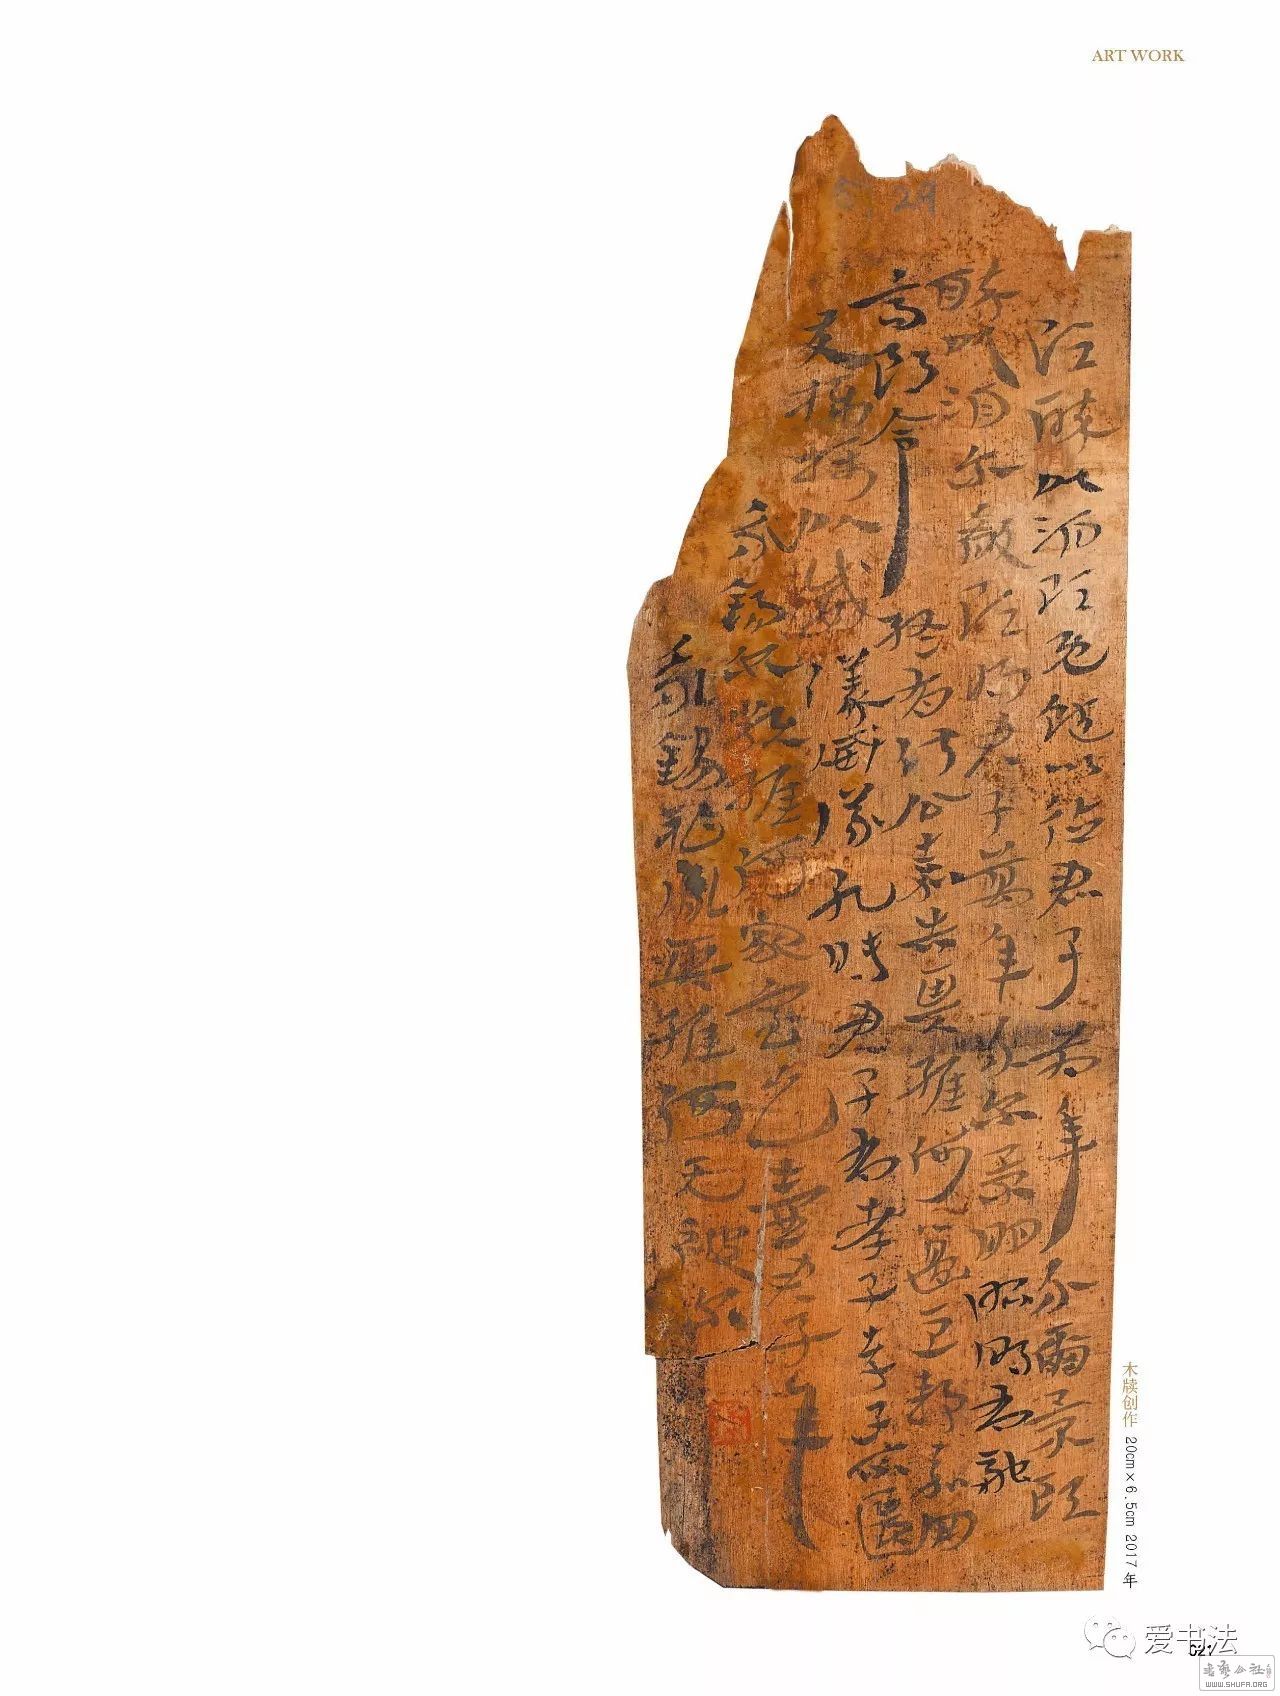 ART WORK
57 29
既醉以酒既飽以德君子萬年介爾景既
醉以酒尔殽既將君子萬年介尔景明昭明有融
高朗令終有俶公嘉告其維何籩豆靜嘉朋
友攸攝以威儀威儀孔時君子有孝子孝子不匱
永錫尔類維何家室之壼君子年
永錫祚胤其維何天被尔
木牍创作 20cm×6.5cm 2017年
爱书法
021
书艺公社
WWW.SHUFA.ORG